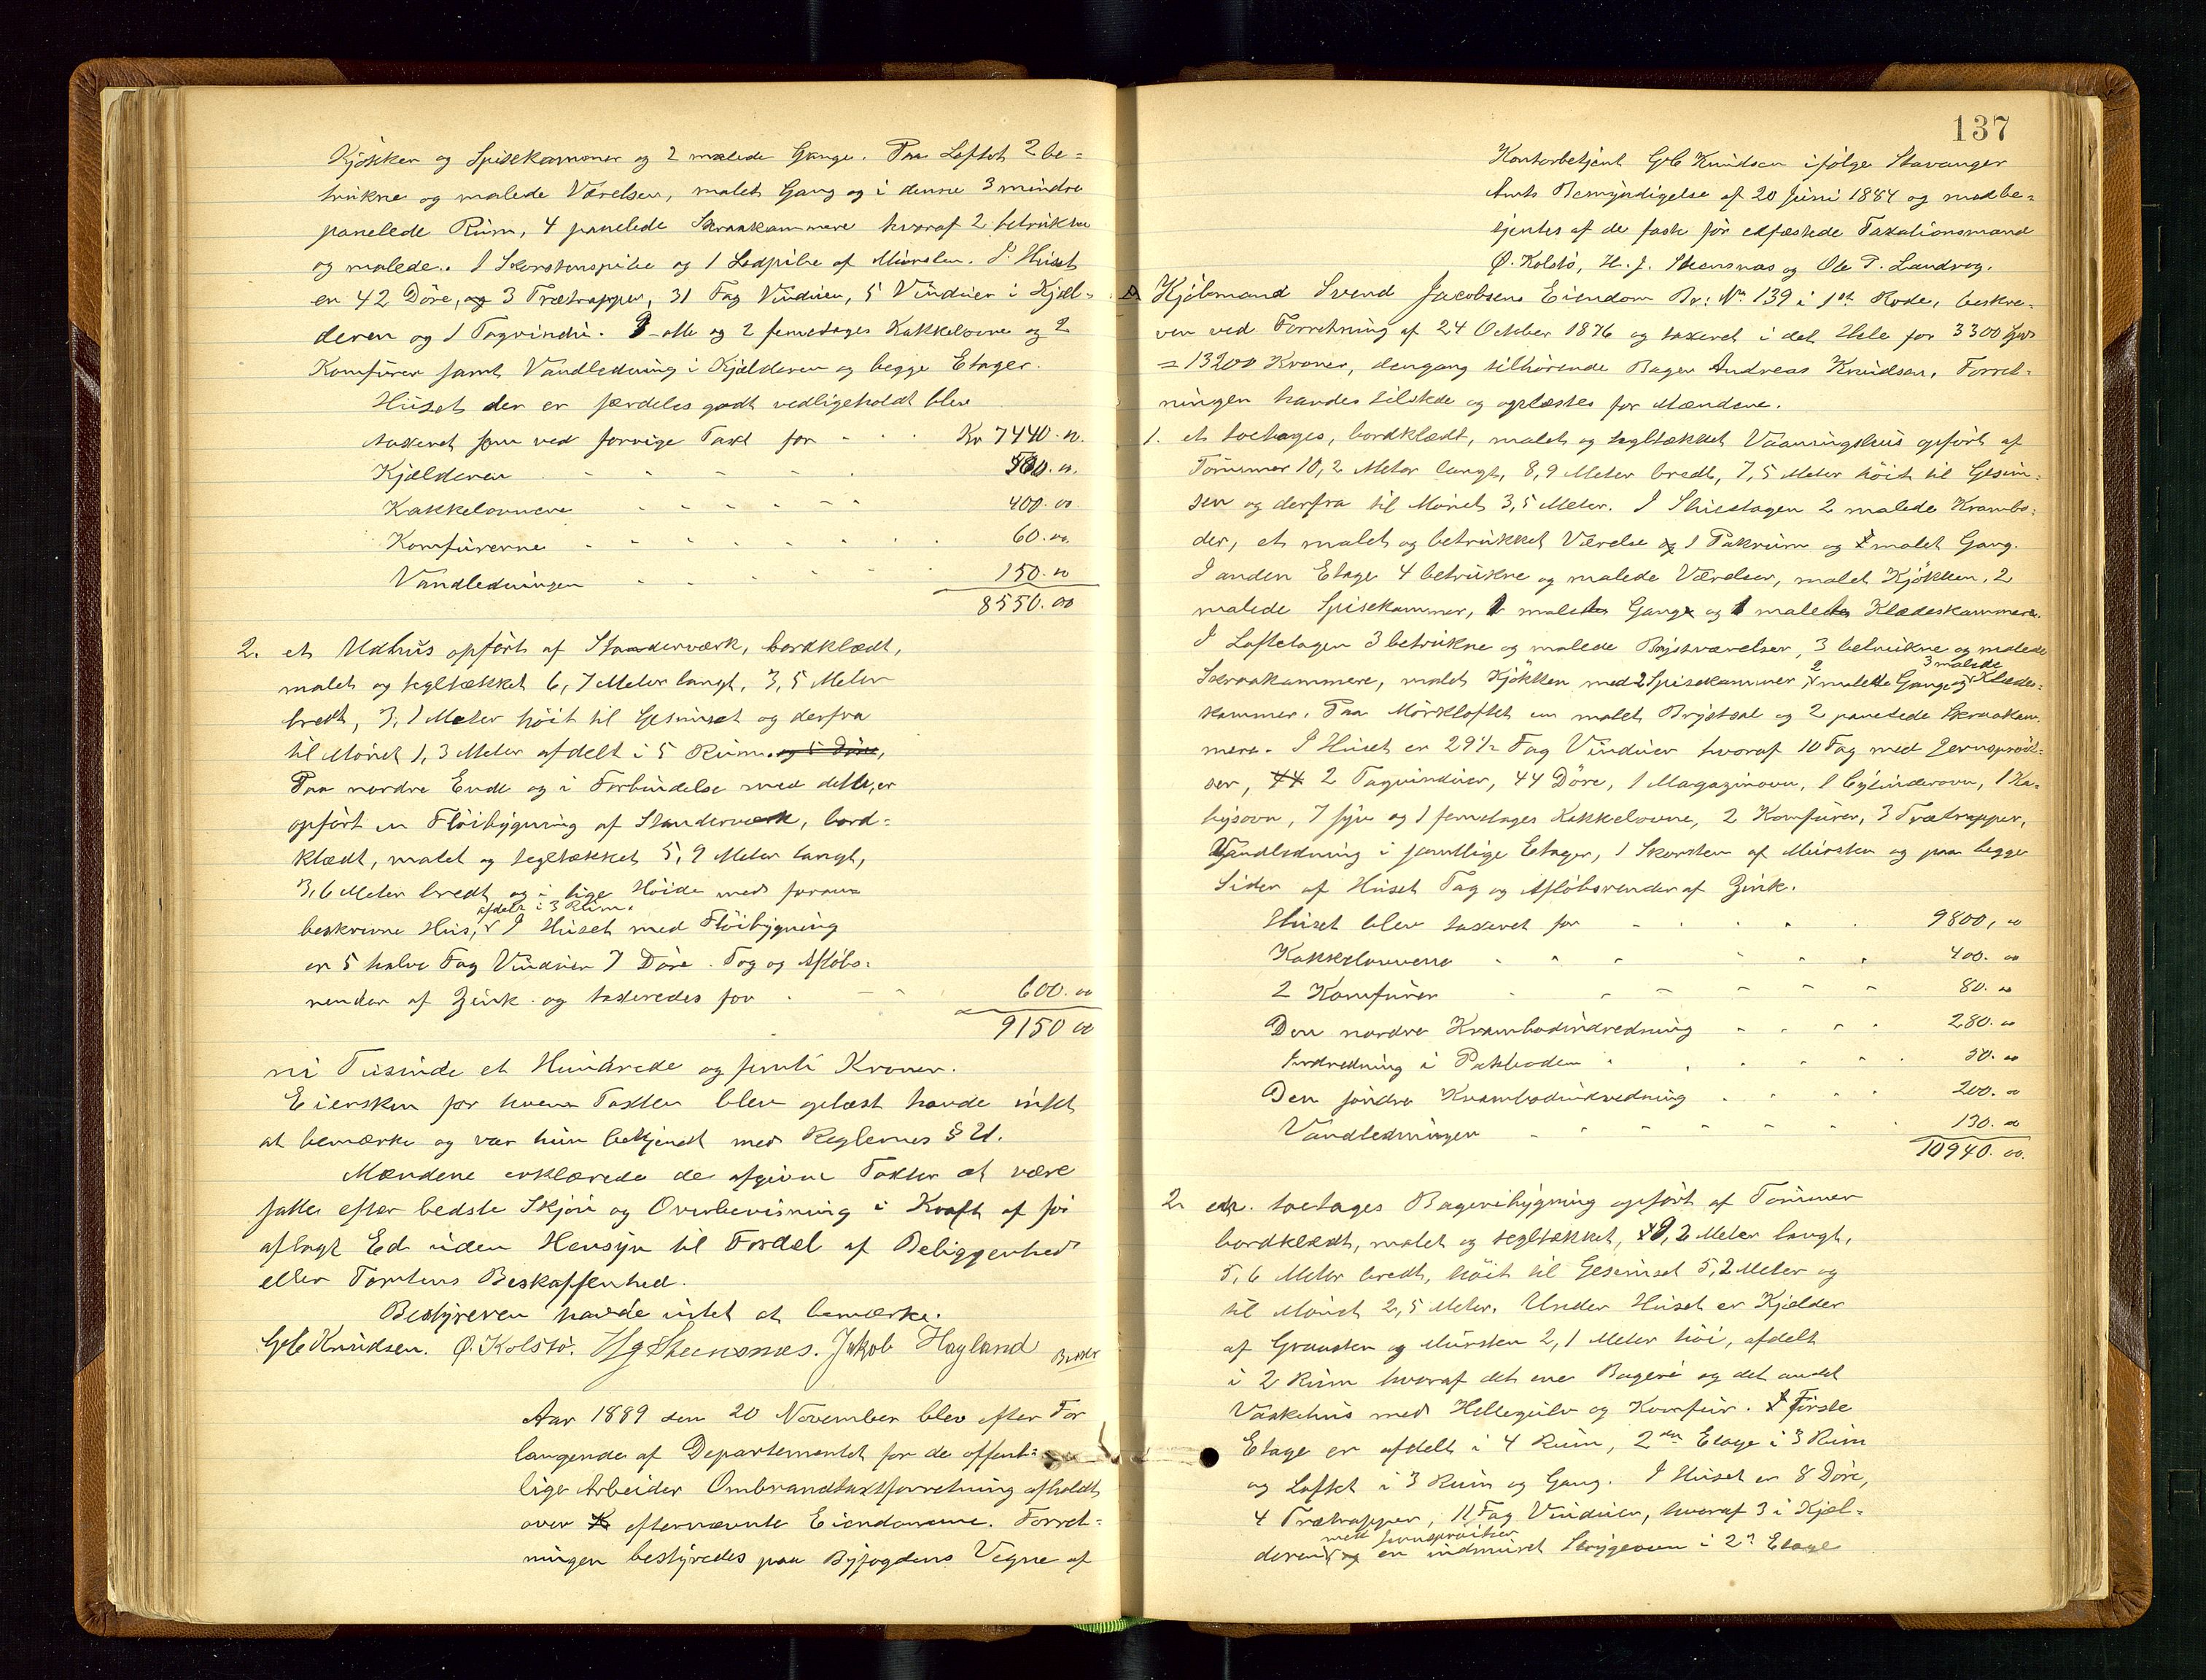 Kjøkken og Spisekammer og 2 malede Gange. Paa Loftet 2 be=
trukne og malede Værelser, malet Gang og i denne 3 mindre
panelede Rum, 4 panelede Skraakammere hvoraf 2 betrukne
og malede. 1 Skorstenspibe og 1 Lodpibe af Mursten. I Huset
er 42 Døre, og 3 Trætrapper, 31 Fag Vinduer, 5 Vinduer i Kjæl=
deren og 1 Tagvindu. otte og 2 femetages Kakkelovne og 2
Komfurer samt Vandledning i Kjælderen og begge Etager.
Huset der er særdeles godt vedligeholdt blev
taxeret som ved forrige Taxt for - - - Kr 7440. 00.
Kjælderen - - - - 500. 00.
Kakkelovnene - - - - 400. 00
Komfurerne - - - - 60. 00.
Vandledningen - - - - 150. 00
8550. 00
2. et Udhus opført af Standerværk, bordklædt,
malet og tegltækket 6,7 Meter langt, 3,5 Meter
bredt, 3,1 Meter høit til Gesimset og derfra
til Mønet 1,3 Meter afdelt i 5 Rum. og 5 Døre,
Paa nordre Ende og i Forbindelse med dette, er
opført en Fløibygning af Standerværk, bord=
klædt, malet og tegltækket 5,9 Meter langt,
3,6 Meter bredt og i lige Høide med foran=
afdelt i 3 Rum.
beskrevne Hus, I Huset med Fløibygning
er 5 halve Fag Vinduer 7 Døre. Tag og Afløbs=
render af Zink og taxeredes for - - - 600. 00
9150 00
ni Tusinde et Hundrede og femti Kroner.
Eiersken for hvem Taxten blev oplæst havde intet
at bemærke og var hun bekjendt med Reglernes § 21.
Mændene erklærede de afgivne Taxter at være
satte efter bedste Skjøn og Overbevisning i Kraft af før
aflagt Ed uden Hensyn til Fordel af Beliggenhed
eller Tomtens Beskaffenhed.
Bestyreren havde intet at bemærke.
Glb Knudsen. Ø. Kolstø. H J Steensnæs. Jakob Hagland
Aar 1889 den 20 November blev efter For
langende af Departementet for de offent=
lige Arbeider Ombrandtaxtforretning afholdt
over efternævnte Eiendomme. Forret=
ningen bestyredes paa Byfogdens Vegne af
137
Kontorbetjent Glb Knudsen ifølge Stavanger
Amts Bemyndigelse af 20 Juni 1884 og medbe=
tjentes af de faste før edfæstede Taxationsmænd
Ø. Kolstø, H. J. Steensnæs og Ole T. Landvog.
Kjøbmand Svend Jacobsens Eiendom Br: No 139 i 1ste Rode, beskre=
ven ved Forretning af 24 October 1876 og taxeret i det Hele for 3300 Spd
= 13200 Kroner, dengang tilhørende Bager Andreas Knudsen, Forret=
ningen havdes tilstede og oplæstes for Mændene.
1. et toetages, bordklædt, malet og tegltækket Vaaningshus opført af
Tømmer 10,2 Meter langt, 8,9 Meter bredt, 7,5 Meter høit til Gesim=
sen og derfra til Mønet 3,5 Meter. I Stuetagen 2 malede Krambo=
der, et malet og betrukket Værelse og 1 Pakrum og 1 malet Gang.
I anden Etage 4 betrukne og malede Værelser, malet Kjøkken, 2
malede Spisekammer, 1 malet Gang og 1 malet Klædeskammer.
I Loftetagen 3 betrukne og malede Brystværelser, 3 betrukne og malede
2 3 malede
Skraakammere, malet Kjøkken med 2 Spisekammer, malede Gange og Klædes=
kammer. Paa Mørkloftet en malet Brystsal og 2 panelede Skraakam=
mere. I Huset er 29½ Fag Vinduer hvoraf 10 Fag med Jernsprød=
ser, 44 2 Tagvinduer, 44 Døre, 1 Magazinovn, 1 Cylinderovn, 1 Ka=
bysovn, 7 syv og 1 femetages Kakkelovne, 2 Komfurer, 3 Trætrapper,
Vandledning i samtlige Etager, 1 Skorsten af Mursten og paa begge
Sider af Huset Tag og Afløbsrender af Zink.
Huset blev taxeret for - - - - 9800, 00
Kakkelovnene - - - - 400. 00
2 Komfurer - - - - 80. 00
Den nordre Krambodindredning - - - - 280. 00
Indredning i Pakboden - - - - 50. 00
Den søndre Krambodindredning - - - - 200. 00
Vandledningen - - - - 130. 00
10940. 00.
2. toetages Bageribygning opført af Tømmer
bordklædt, malet og tegltækket, ,2 Meter langt,
5,6 Meter bredt, høit til Gesimset 5,2 Meter og
til Mønet 2,5 Meter. Under Huset er Kjælder
af Graasten og Mursten 2,1 Meter høi, afdelt
i 2 Rum hvoraf det ene Bageri og det andet
Vaskehus med Hellegulv og Komfur. Første
Etage er afdelt i 4 Rum, 2den Etage i 3 Rum
og Loftet i 3 Rum og Gang. I Huset er 8 Døre,
4 Trætrapper, 11 Fag Vinduer, hvoraf 3 i Kjæl=
med Jernsprødser
deren, og en indmuret Strygeovn i 2n Etage